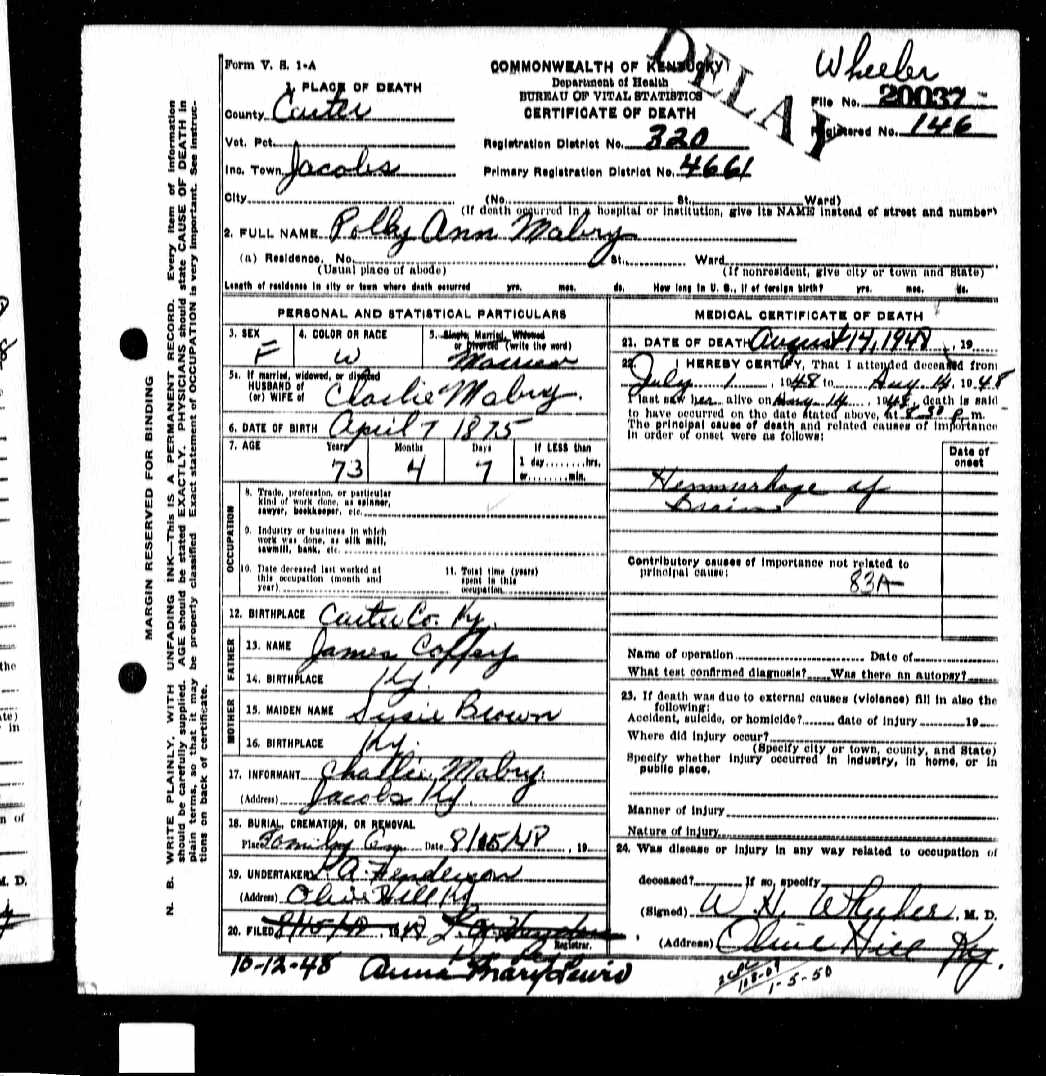 DELAY
Wheeler
Form V. S. 1-A
COMMONWEALTH OF KENTUCKY
Department of Health
BUREAU OF VITAL STATISTICS
CERTIFICATE OF DEATH
File No. 20037
Registered No. 146
1. PLACE OF DEATH
County Carter
Vot. Pct.
Registration District No. 320
Inc. Town Jacobs
Primary Registration District No. 4661
City (No. St. Ward)
(If death occurred in a hospital or institution, give its NAME instead of street and number)
2. FULL NAME Polly Ann Mabry
(a) Residence. No. St. Ward
(Usual place of abode) (If nonresident, give city or town and State)
Length of residence in city or town where death occurred yrs. mos. ds. How long in U. S., if of foreign birth? yrs. mos. ds.
PERSONAL AND STATISTICAL PARTICULARS
3. SEX F
4. COLOR OR RACE W
5. Single, Married, Widowed
or Divorced (write the word)
Married
5a. If married, widowed, or divorced
HUSBAND of
(or) WIFE of Charlie Mabry.
6. DATE OF BIRTH April 7 1875
7. AGE Years 73 Months 4 Days 7 If LESS than
1 day,........hrs.
or........min.
OCCUPATION
8. Trade, profession, or particular
kind of work done, as spinner,
sawyer, bookkeeper, etc.
9. Industry or business in which
work was done, as silk mill,
sawmill, bank, etc.
10. Date deceased last worked at
this occupation (month and
year)
11. Total time (years)
spent in this
occupation
12. BIRTHPLACE Carter Co. Ky.
FATHER
13. NAME James Coffey
14. BIRTHPLACE Ky.
MOTHER
15. MAIDEN NAME Susie Brown
16. BIRTHPLACE Ky.
17. INFORMANT Charlie Mabry
(Address) Jacobs Ky.
18. BURIAL, CREMATION, OR REMOVAL
Place Family Date 8/15/48, 19
19. UNDERTAKER Henderson
(Address) Olive Hill Ky
20. FILED 8/15/48
Registrar.
10-12-48 Anna Mary Lewis
MEDICAL CERTIFICATE OF DEATH
21. DATE OF DEATH August 14, 1948, 19
22. I HEREBY CERTIFY, That I attended deceased from
July 1, 1948 to Aug 14, 1948
I last saw her alive on Aug 14, 1948, death is said
to have occurred on the date stated above, at 8:30 p. m.
The principal cause of death and related causes of importance
in order of onset were as follows:
Date of
onset
Hemmorhage of
Brain
Contributory causes of importance not related to
principal cause:
83A
Name of operation Date of
What test confirmed diagnosis? Was there an autopsy?
23. If death was due to external causes (violence) fill in also the
following:
Accident, suicide, or homicide? date of injury 19
Where did injury occur?
(Specify city or town, county, and State)
Specify whether injury occurred in industry, in home, or in
public place.
Manner of injury
Nature of injury
24. Was disease or injury in any way related to occupation of
deceased? If so, specify
(Signed) W. H. Wheeler, M. D.
(Address) Olive Hill Ky.
1-5-50
MARGIN RESERVED FOR BINDING
N. B. WRITE PLAINLY, WITH UNFADING INK—This is A PERMANENT RECORD. Every item of information
should be carefully supplied. AGE should be stated EXACTLY. PHYSICIANS should state CAUSE OF DEATH in
plain terms, so that it may be properly classified. Exact statement of OCCUPATION is very important. See instruc-
tions on back of certificate.